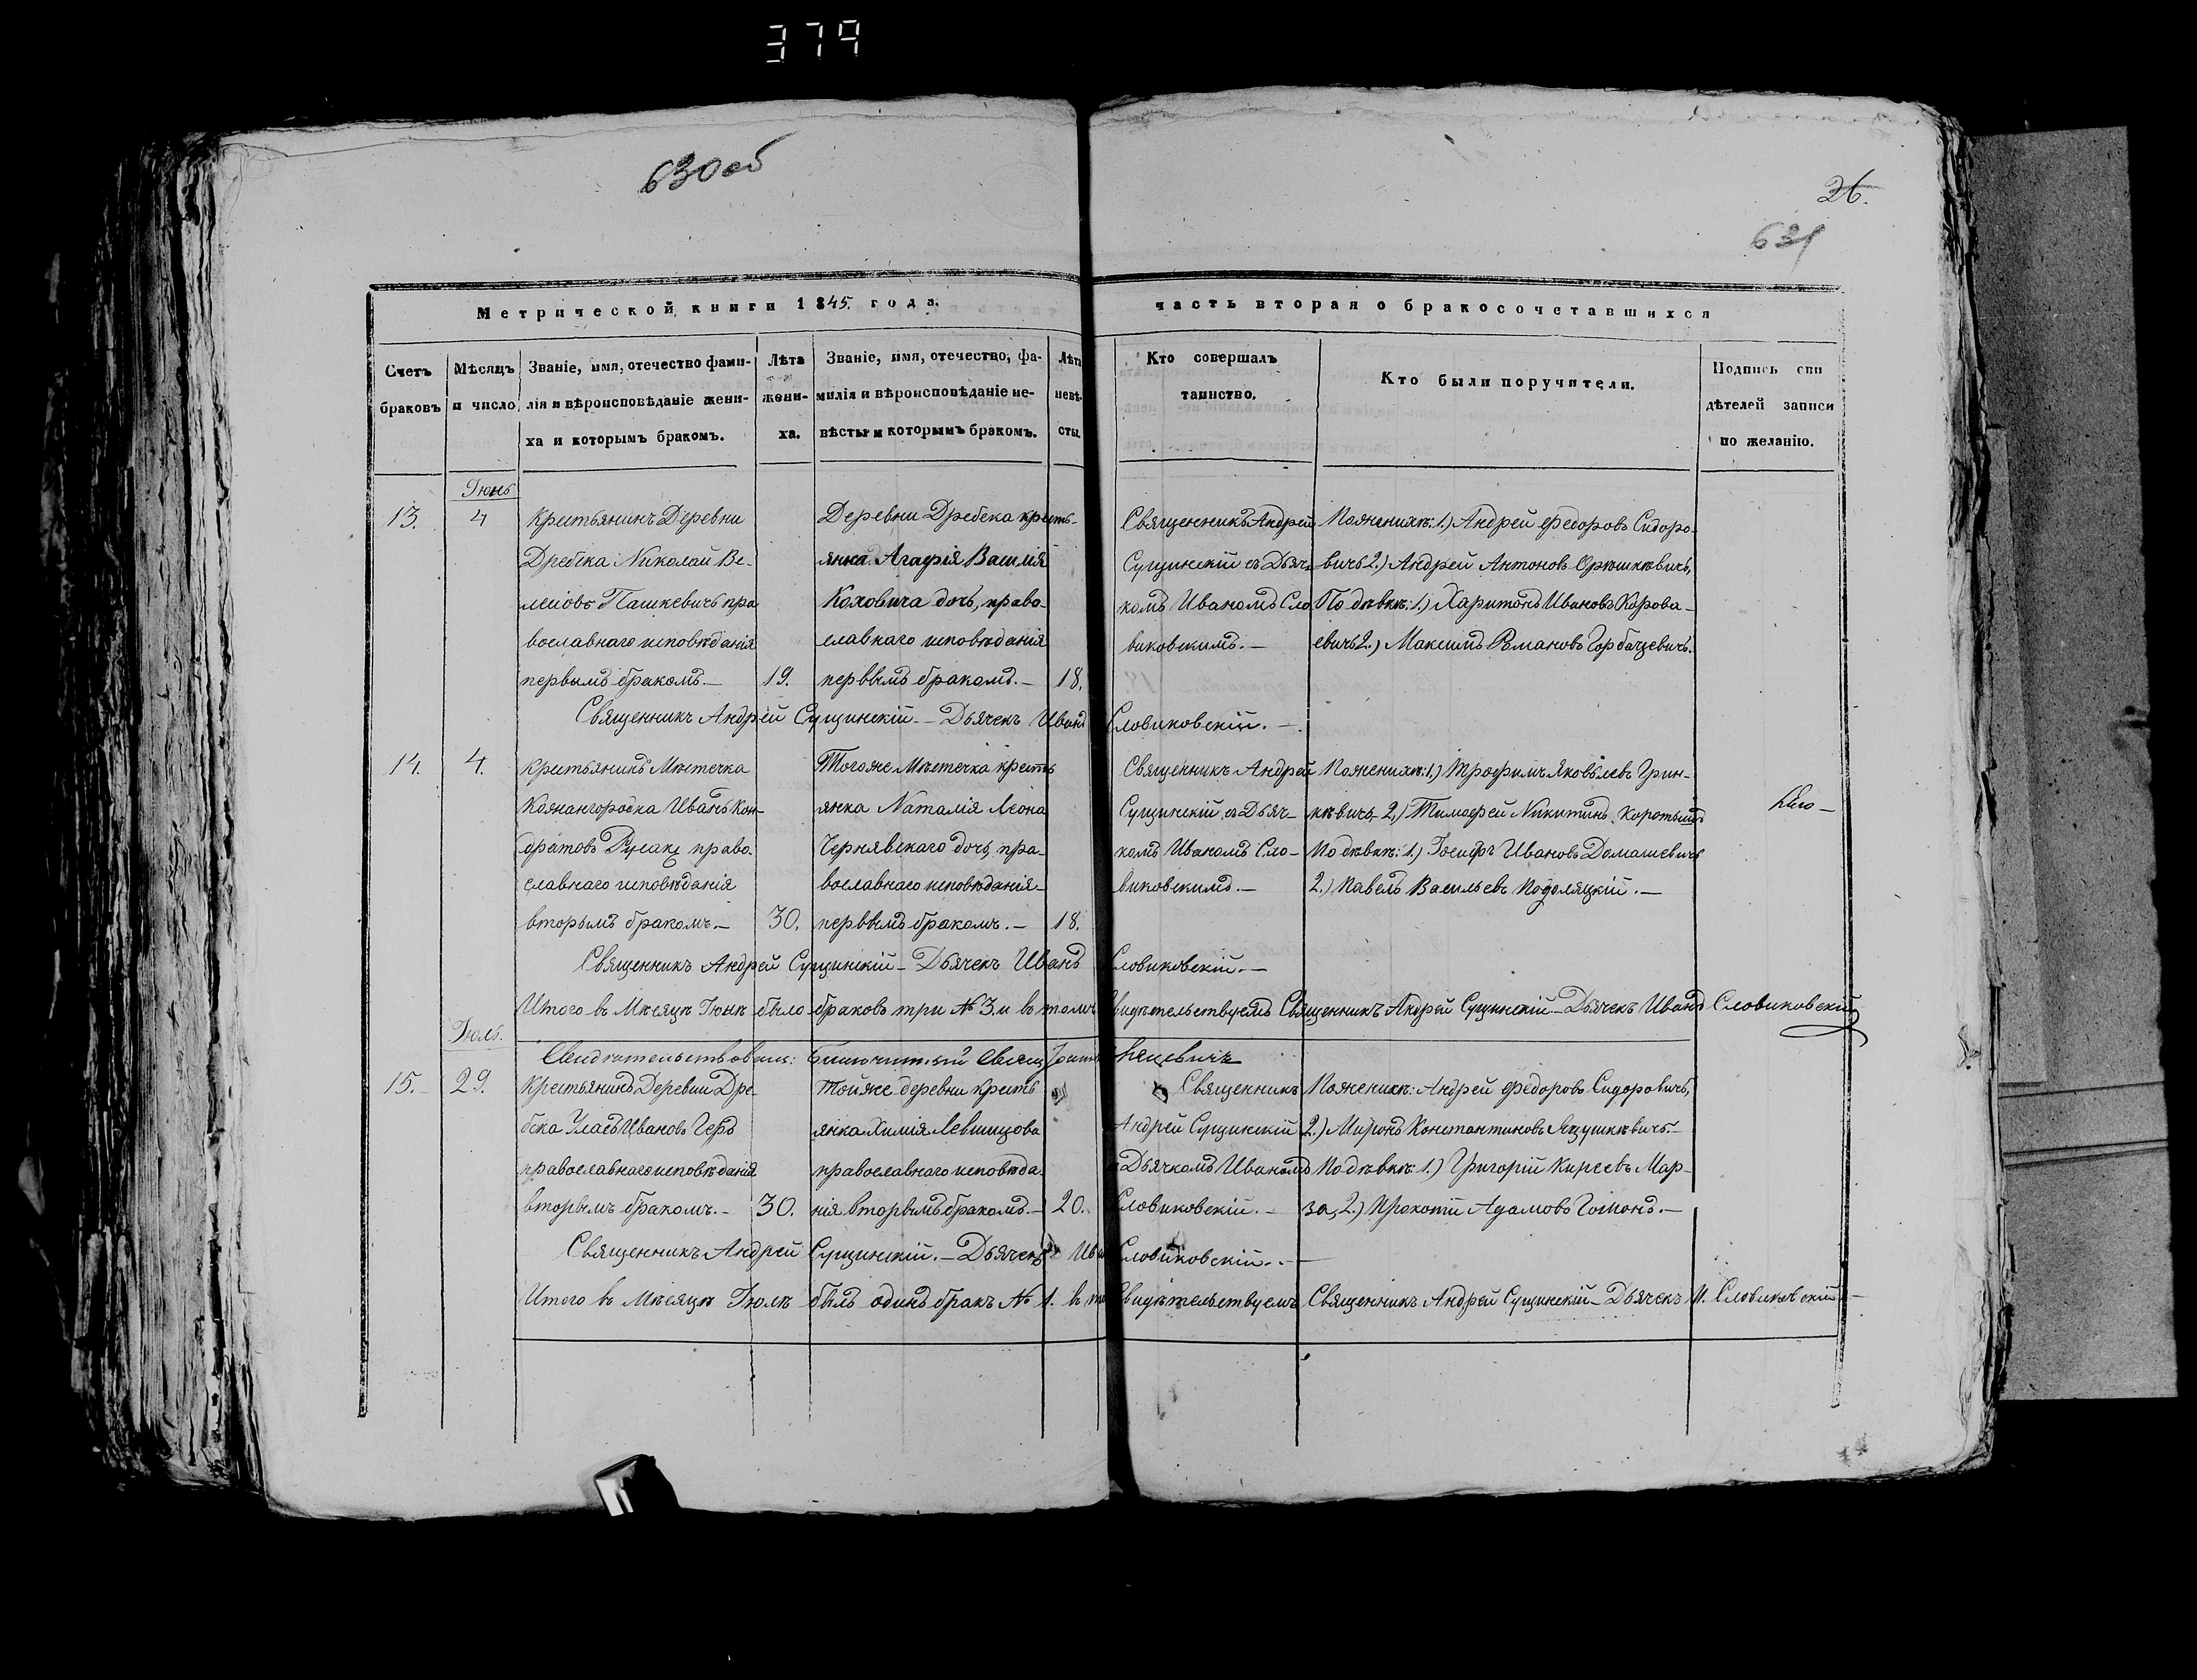 379
630об
26.
631
Метрической книги 1845. года.
часть вторая о бракосочетавшихся
Счетъ браковъ
Мѣсяцъ и число
Званіе, имя, отечество фами-
лія и вѣроисповѣданіе жени-
ха и которымъ бракомъ.
Лѣта
жени-
ха.
Званіе, имя, отечество, фа-
милія и вѣроисповѣданіе не-
вѣсты и которымъ бракомъ.
Лѣта
невѣ-
сты.
Кто совершалъ
таинство.
Кто были поручители.
Подпись сви
дѣтелей записи
по желанію.
Іюнь
13.
4
Крестьянинъ Деревни
Дребска Николай Ве-
Пашкевичъ пра
вославнаго исповѣданія
первымъ бракомъ.—
19.
Деревни Дребска кресть-
янка Агафія Василія
Коховича дочь, право-
славнаго исповѣданія
первымъ бракомъ.—
18.
Священникъ Андрей
Сущинскій съ Дьяч-
комъ Иваномъ Сло
виковскимъ.—
По женихѣ: 1.) Андрей Федоровъ Сидоро-
вичъ 2.) Андрей Антоновъ
По дѣвкѣ: 1.) Харитонъ Ивановъ Корова-
евичъ 2.) Максимъ Романовъ Горбацевичъ.
Священникъ Андрей Сущинскій.— Дьячекъ Иванъ Словиковскій.—
14.
4.
Крестьянинъ Мѣстечка
Кожангородка Иванъ Кон-
дратовъ Русакъ право-
славнаго исповѣданія
вторымъ бракомъ.—
30.
Тогоже Мѣстечка кресть
янка Наталія Леона
Чернявскаго дочь, пра-
вославнаго исповѣданія
первымъ бракомъ.—
18.
Священникъ Андрей
Сущинскій, съ Дьяч-
комъ Иваномъ Сло-
виковскимъ.—
По женихѣ: 1.) Трофимъ Яковлевъ Грин-
кѣвичъ— 2.) Тимофей Никитинъ
По дѣвкѣ: 1.) Іосифъ Ивановъ Домашевичъ
2.) Павелъ Васильевъ Подоляцкій.—
Священникъ Андрей Сущинскій— Дьячекъ Иванъ Словиковскій.—
Итого въ Мѣсяцѣ Іюнѣ было браковъ три № 3. и въ томъ свидѣтельствуемъ Священникъ Андрей Сущинскій— Дьячекъ Иванъ Словиковскій
Іюль.
Свидѣтельствовалъ: Благочинный Священ
15.—
29.
Крестьянинъ Деревни Дре-
бска Власъ Ивановъ
православнаго исповѣданія
вторымъ бракомъ.—
30.
Тойже деревни Кресть
янка Химия Левшицова
православнаго исповѣда
нія вторымъ бракомъ.—
20.
Священникъ
Андрей Сущинскій
Дьячкомъ Иваномъ
Словиковскій.—
По женихѣ: Андрей Федоровъ Сидоровичъ,
2.) Миронъ Константиновъ Яцушкѣвичъ.—
По дѣвкѣ: 1.) Григорій Киреевъ Мар-
за, 2.) Прокопій Адамовъ Гомонъ.—
Священникъ Андрей Сущинскій.— Дьячекъ Иванъ Словиковскій.—
Итого въ Мѣсяцѣ Іюлѣ былъ одинъ бракъ № 1. въ томъ Свидѣтельствуемъ Священникъ Андрей Сущинскій— Дьячекъ И. Словиковскій—